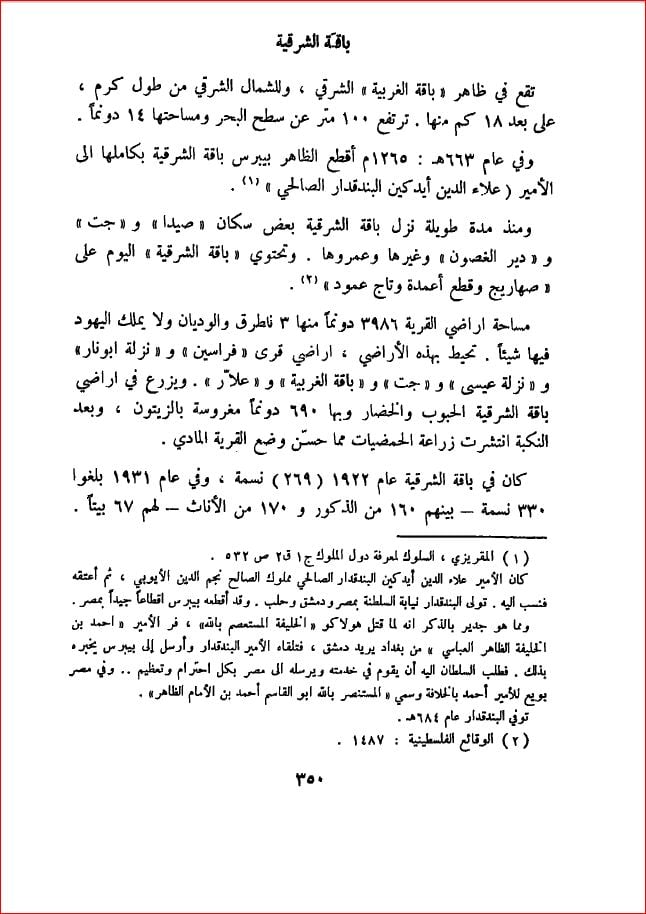 باقة الشرقية
تقع في ظاهر « باقة الغربية » الشرقي ، وللشمال الشرقي من طول كرم ،
على بعد ١٨ كم منها . ترتفع ١٠٠ متر عن سطح البحر ومساحتها ١٤ دونماً .
وفي عام ٦٦٣هـ : ١٢٦٥م أقطع الظاهر بيبرس باقة الشرقية بكاملها الى
الأمير ( علاء الدين أيدكين البندقدار الصالحي » (١) .
ومنذ مدة طويلة نزل باقة الشرقية بعض سكان « صيدا » و « جت »
و « دير الغصون » وغيرها وعمروها . وتحتوي « باقة الشرقية » اليوم على
« صهاريج وقطع أعمدة وتاج عمود » (٢) .
مساحة اراضي القرية ٣٩٨٦ دونماً منها ٣ ناطرق والوديان ولا يملك اليهود
فيها شيئاً . تحيط بهذه الأراضي ، اراضي قرى « فراسين » و « نزلة ابونار»
و « نزلة عيسى » و « جت » و « باقة الغربية » و « علاّر » . ويزرع في اراضي
باقة الشرقية الحبوب والخضار وبها ٦٩٠ دونماً مغروسة بالزيتون ، وبعد
النكبة انتشرت زراعة الحمضيات مما حسّن وضع القرية المادي .
كان في باقة الشرقية عام ١٩٢٢ ( ٢٦٩ ) نسمة ، وفي عام ١٩٣١ بلغوا
٣٣٠ نسمة — بينهم ١٦٠ من الذكور و ١٧٠ من الأناث — لهم ٦٧ بيتاً .
( ١ ) المقريزي ، السلوك لمعرفة دول الملوك ج١ ق٢ ص ٥٣٢ .
كان الأمير علاء الدين أيدكين البندقدار الصالحي مملوك الصالح نجم الدين الأيوبي ، ثم أعتقه
فنسب اليه . تولى البندقدار نيابة السلطنة بمصر ودمشق وحلب . وقد أقطعه بيبرس اقطاعاً جيداً بمصر .
ومما هو جدير بالذكر انه لما قتل هولاكو « الخليفة المستعصم بالله» ، فر الأمير « احمد بن
الخليفة الظاهر العباسي » من بغداد يريد دمشق ، فتلقاه الأمير البندقدار وأرسل إلى بيبرس يخبره
بذلك . فطلب السلطان اليه أن يقوم في خدمته ويرسله الى مصر بكل احترام وتعظيم .. وفي مصر
بويع للأمير أحمد بالخلافة وسمي « المستنصر بالله ابو القاسم أحمد بن الأمام الظاهر » .
توفي البندقدار عام ٦٨٤هـ .
( ٢ ) الوقائع الفلسطينية : ١٤٨٧ .
٣٥٠